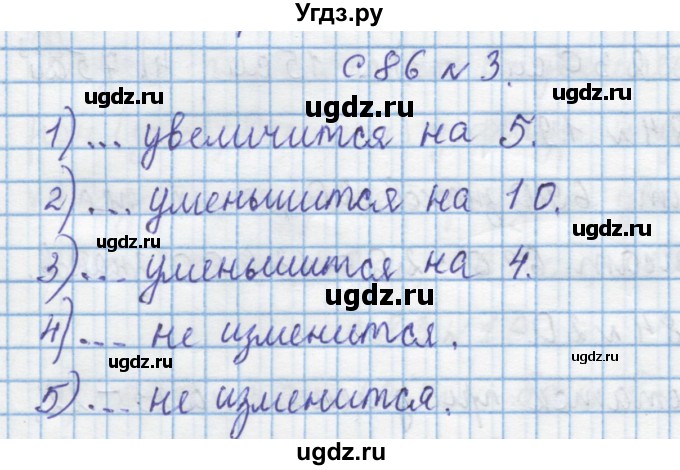 Угдз.ру
с. 86 № 3.
ugdz.ru ugdz.ru
1) ... увеличится на 5.
ugdz.ru
2) ... уменьшится на 10.
ugdz.ru ugdz.ru
3) ... уменьшится на 4.
ugdz.ru
4) ... не изменится.
ugdz.ru ugdz.ru
5) ... не изменится.
ugdz.ru
угдз.ру